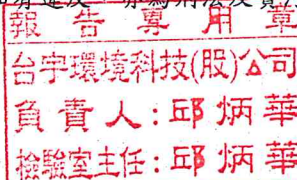 報告專用章
台宇環境科技(股)公司
負責人:邱炳華
檢驗室主任:邱炳華